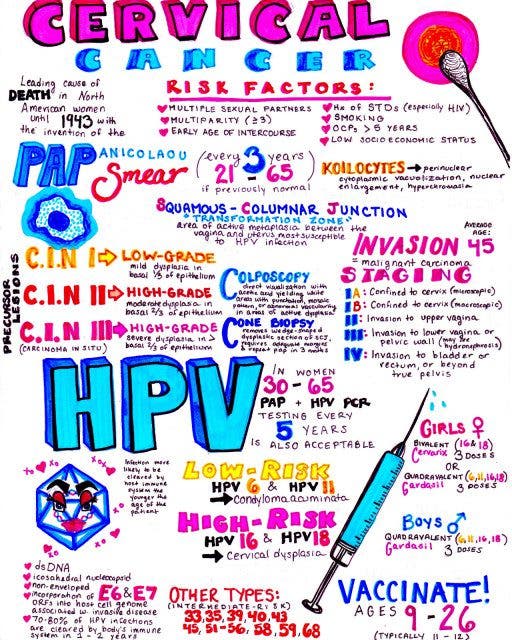 CERVICAL
CANCER
Leading cause of
DEATH in North
American women
until 1943 with
the invention of the
RISK FACTORS:
MULTIPLE SEXUAL PARTNERS
MULTIPARITY (≥3)
EARLY AGE OF INTERCOURSE
Hx of STDs (especially HIV)
SMOKING
OCPs > 5 YEARS
LOW SOCIOECONOMIC STATUS
PAPANICOLAOU
Smear
(every 3 years)
21-65
if previously normal
KOILOCYTES → perinuclear
cytoplasmic vacuolization, nuclear
enlargement, hyperchromasia
SQUAMOUS-COLUMNAR JUNCTION
"TRANSFORMATION ZONE"
area of active metaplasia between the
vagina and uterus most susceptible
to HPV infection
PRECURSOR LESIONS
C.I.N I → LOW-GRADE
mild dysplasia in
basal 1/3 of epithelium
C.I.N II → HIGH-GRADE
moderate dysplasia in
basal 2/3 of epithelium
C.I.N III → HIGH-GRADE
(CARCINOMA IN SITU)
severe dysplasia in >
basal 2/3 of epithelium
COLPOSCOPY
direct visualization with
acetic acid yielding white
areas with punctation, mosaic
pattern, or abnormal vascularity
in areas of active dysplasia
CONE BIOPSY
removes wedge-shaped
dysplastic section of SCJ,
requires adequate margins
& repeat pap in 3 months
AVERAGE
AGE:
INVASION 45
= malignant carcinoma
STAGING
IA: Confined to cervix (microscopic)
IB: Confined to cervix (macroscopic)
II: Invasion to upper vagina
III: Invasion to lower vagina, or
pelvic wall (may see
hydronephrosis)
IV: Invasion to bladder or
rectum, or beyond
true pelvis
HPV
IN WOMEN
30-65
PAP + HPV PCR
TESTING EVERY
5 YEARS
IS ALSO ACCEPTABLE
Infection more
likely to be
cleared by
host immune
system the
younger the
age of the
patient
LOW-RISK
HPV 6 & HPV 11
→ Condyloma acuminata
HIGH-RISK
HPV 16 & HPV 18
→ Cervical dysplasia
GIRLS ♀
BIVALENT (16 & 18)
Cervarix 3 DOSES
OR
QUADRAVALENT (6,11,16,18)
Gardasil 3 DOSES
BOYS ♂
QUADRAVALENT (6,11,16,18)
Gardasil 3 DOSES
dsDNA
icosahedral nucleocapsid
non-enveloped
incorporation of E6 & E7
ORFs into host cell genome
associated w invasive disease
70-80% of HPV infections
are cleared by body's immune
system in 1-2 years
OTHER TYPES:
(INTERMEDIATE-RISK)
33, 35, 39, 40, 43
45, 51-56, 58, 59, 68
VACCINATE!
AGES 9-26
(TYPICALLY 11-